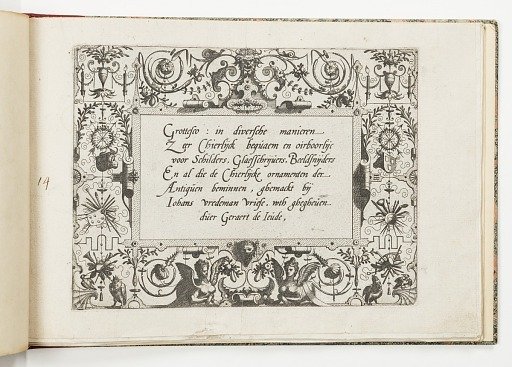 14
Grottesco: in diversche manieren
Zeer Chierlijck bequaem en oirboorlijc
voor Schilders, Glaesschrijvers, Beeldsnijders
En al die de Chierlijcke ornamenten der
Antiquen beminnen, ghemackt bij
Iohans vredeman vriese, wth ghegheuen
duer Geraert de Ieude,